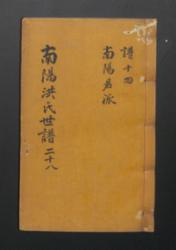 譜十四
南陽君派
南陽洪氏世譜 二十八